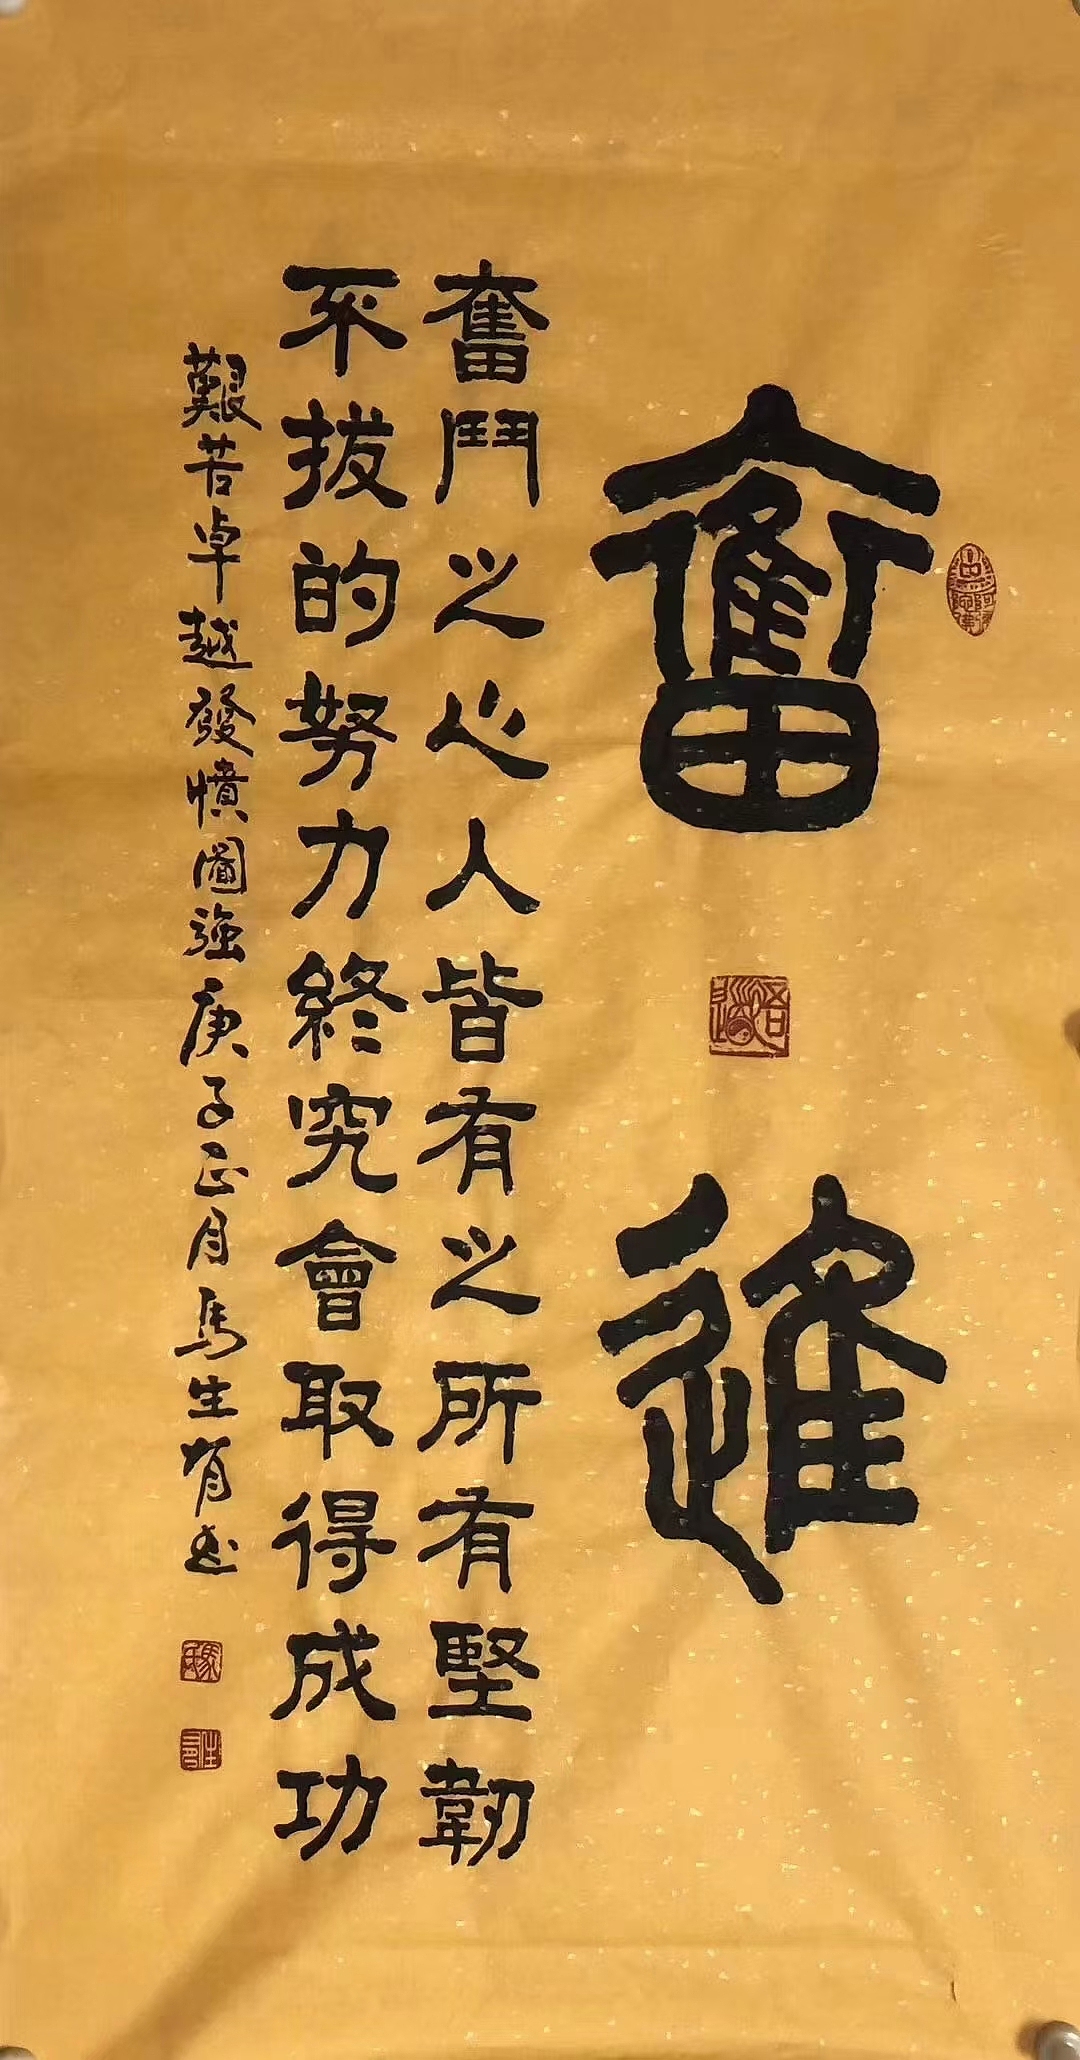 奮進
奮鬥之心人皆有之所有堅韌
不拔的努力終究會取得成功
艱苦卓越發憤圖強庚子正月馬生有書